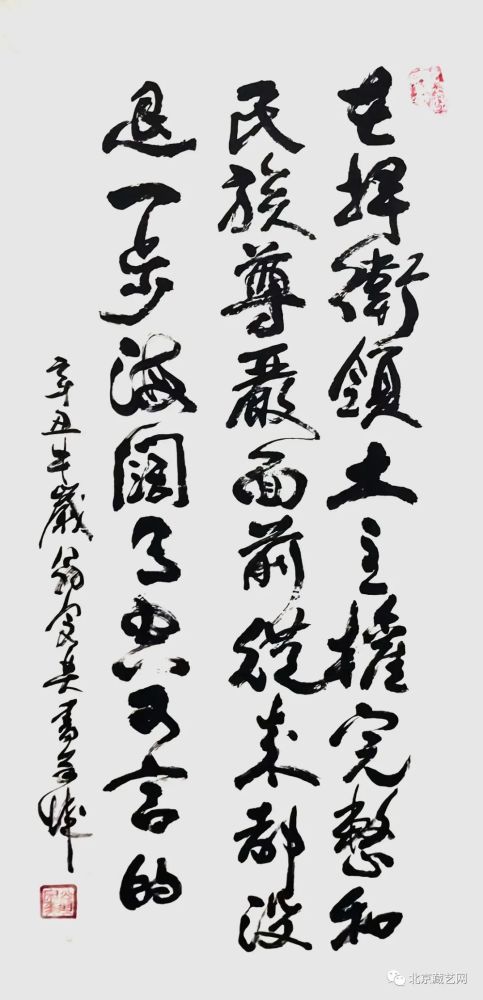 在捍衛領土主權完整和
民族尊嚴面前從來都沒
退一步海闊天空可言的
辛丑牛歲翁書於津
北京藏艺网